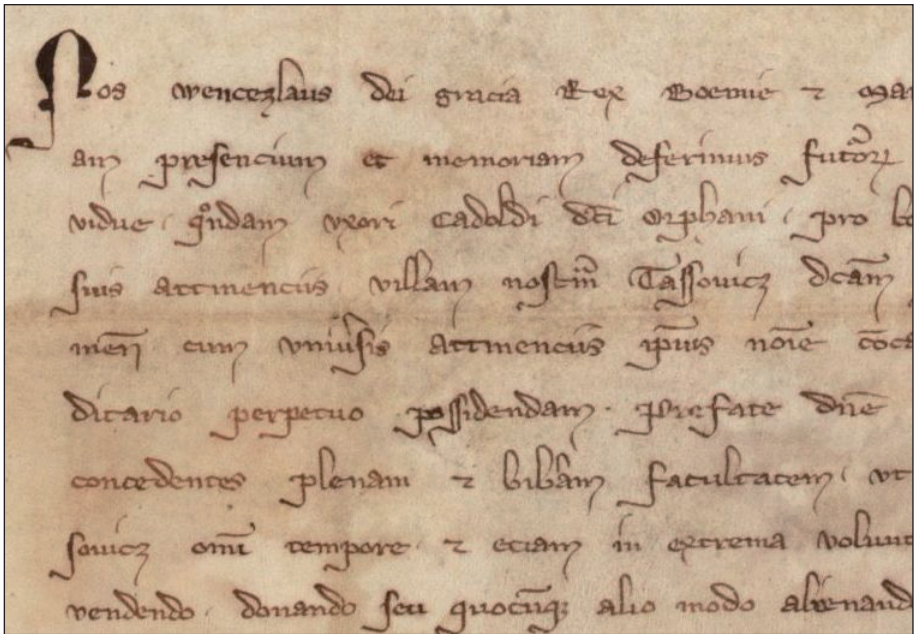 Nos wencezlaus dei gracia Rex Boemie ⁊ Mar
am presencium et memoriam deferimus futorꝝ
vidue · qndam vxori Cadoldi dci Orphani · pro bo
suis attinenciis villam nostm Tassouicz dcam
meri cum vniusis attinenciis ipius noie coca
ditario perpetuo possidendam · Prefate dne
concedentes plenam ⁊ libam facultatem · vt
souicz omi tempore · ⁊ eciam in extrema volunt
vendendo · donando seu quocuqꝫ alio modo alienand